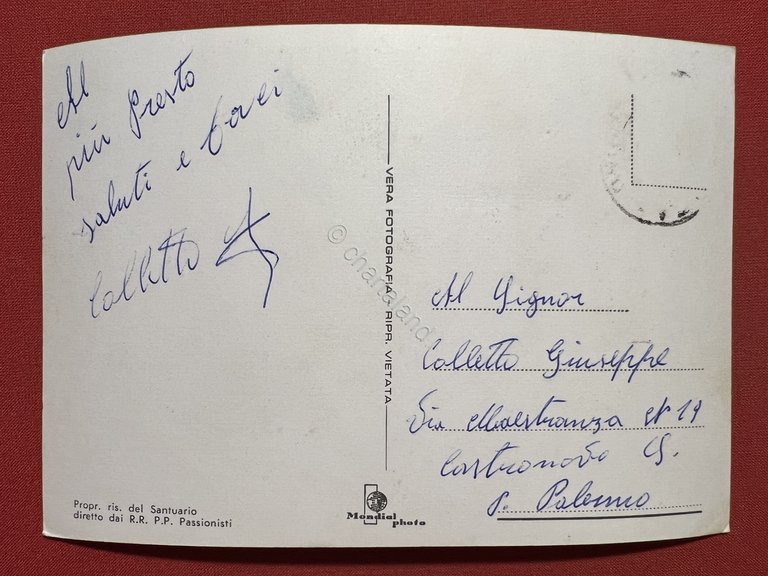 Al
più Presto
saluti e baci
Colletto
Propr. ris. del Santuario
diretto dai R.R. P.P. Passionisti
VERA FOTOGRAFIA RIPR. VIETATA
© chartaland
Mondial
photo
Al Signor
Colletto Giuseppe
Via Maestranza N 19
Castronovo S.
P. Palermo